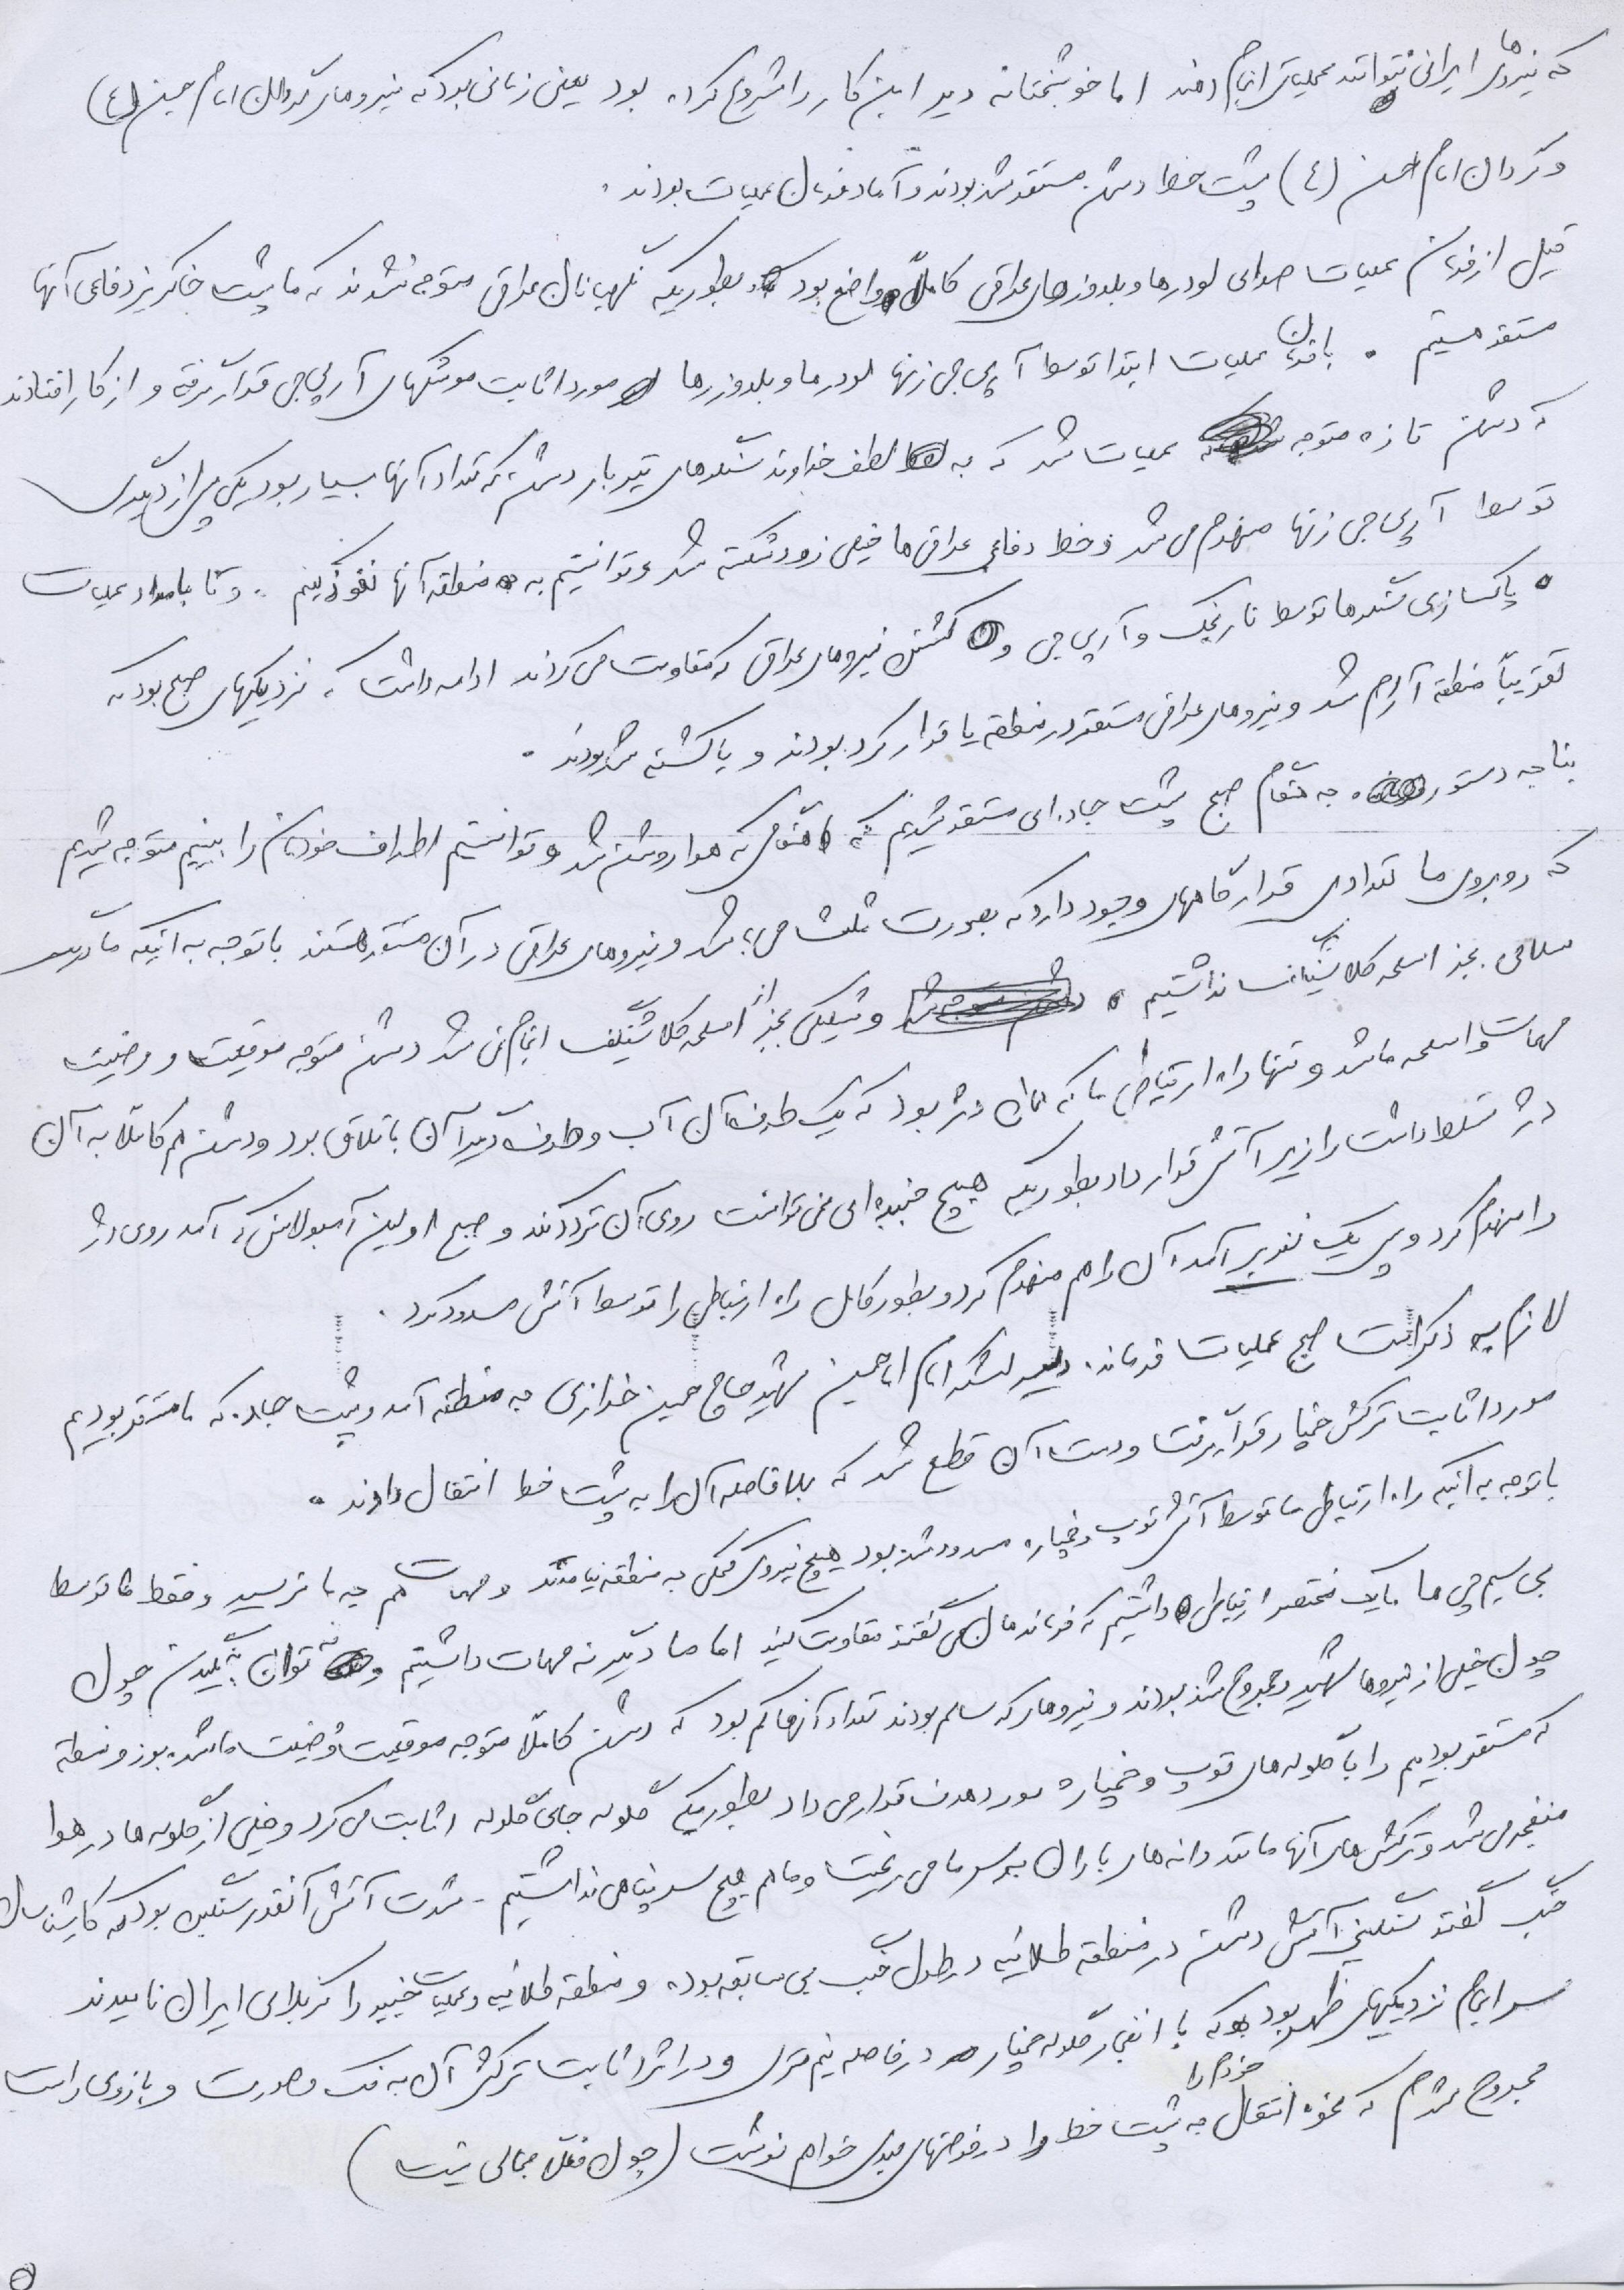 که نیروهای ایرانی نتوانند عملیاتی انجام دهند اما خوشبختانه دیر این کار را شروع کرده بود یعنی زمانی بود که نیروهای گردان امام حسین (ع)
و گردان امام حسن (ع) پشت خط دشمن مستقر شده بودند و آماده فرمان عملیات بودند .
قبل از فرمان عملیات صدای لودرها و بلدوزرهای عراقی کاملاً واضح بود بطوریکه نگهبانان عراقی متوجه نشدند که ما پشت خاکریز دفاعی آنها
مستقر هستیم . با فرمان عملیات ابتدا توسط آرپی جی زنها لودرها و بلدوزرها مورد اثابت موشکهای آرپی جی قرار گرفته و از کار افتادند
که دشمن تازه متوجه عملیات شد که به لطف خداوند سنگرهای تیربار دشمن که تعداد آنها بسیار بود یکی پس از دیگری
توسط آرپی جی زنها منهدم می شد و خط دفاعی عراقی ها خیلی زود شکسته شد و توانستیم به منطقه آنها نفوذ کنیم . و تا بامداد عملیات
پاکسازی سنگرها توسط نارنجک و آرپی جی و کشتن نیروهای عراقی که مقاومت می کردند ادامه داشت که نزدیکیهای صبح بود که
تقریباً منطقه آرام شد و نیروهای عراقی مستقر در منطقه یا فرار کرده بودند و یا کشته شده بودند .
بنا به دستور به هنگام صبح پشت جاده ای مستقر شدیم که هنگامی که هوا روشن شد و توانستیم اطراف خودمان را ببینیم متوجه شدیم
که روبروی ما تعدادی قرارگاههای وجود دارد که بصورت مثلث می باشد و نیروهای عراقی در آن مستقر هستند با توجه به اینکه ما دیگر
سلاحی بجز اسلحه کلاشینکف نداشتیم . و شلیکی بجز از اسلحه کلاشینکف انجام نمی شد دشمن متوجه موقعیت و وضعیت
مهمات و اسلحه ما شد و تنها راه ارتباطی ما که همان دژ بود که یک طرف آن آب و طرف دیگر آن باتلاق بود و دشمن هم کاملاً به آن
دژ تسلط داشت را زیر آتش قرار داد بطوریکه هیچ جنبنده ای نمی توانست روی آن تردد کند و صبح اولین آمبولانس که آمد روی دژ
را منهدم کرد و پس یک نفربر آمد آن را هم منهدم کرد و بطور کامل راه ارتباطی را توسط آتش مسدود کرد .
لازم به ذکر است صبح عملیات فرمانده لشکر امام حسین شهید حاج حسین خرازی به منطقه آمد و پشت جاده که ما مستقر بودیم
مورد اثابت ترکش خمپاره قرار گرفت و دست آن قطع شد که بلافاصله آن را به پشت خط انتقال دادند .
با توجه به اینکه راه ارتباطی ما توسط آتش توپ و خمپاره مسدود شده بود هیچ نیروی کمکی به منطقه نیامدند و مهمات هم به ما نرسید و فقط ما توسط
بی سیم چی ها با یک مختصر ارتباطی داشتیم که فرماندهان می گفتند مقاومت کنید اما ما دیگر نه مهمات داشتیم و نه توان جنگیدن چون
چون خیلی از نیروها شهید و مجروح شده بودند و نیروهای که سالم بودند تعداد آنها کم بود که دشمن کاملاً متوجه موقعیت و وضعیت ما شده بود و منطقه
که مستقر بودیم را با گلوله های توپ و خمپاره مورد هدف قرار می داد بطوریکه گلوله جای گلوله اثابت می کرد و خیلی از گلوله ها در هوا
منفجر می شد و ترکش های آنها مانند دانه های باران به سر ما می ریخت و ما هم هیچ سرپناهی نداشتیم - شدت آتش آنقدر سنگین بود که کارشناسان
جنگ گفتند سنگینی آتش دشمن در منطقه طلائیه در طول جنگ بی سابقه بوده و منطقه طلائیه و عملیات خیبر را کربلای ایران نامیدند
سرانجام نزدیکیهای ظهر بود که با انفجار گلوله خمپاره در فاصله نیم متری و در اثر اثابت ترکش آن به فک و صورت و بازوی راست
مجروح شدم که نحوه انتقال خودم را به پشت خط را در فرصتهای بعدی خواهم نوشت (چون فعلاً مجالی نیست)